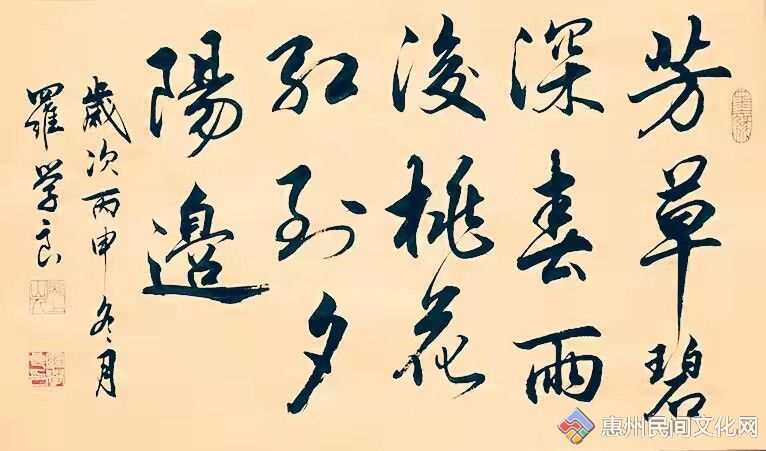 芳草碧
深春雨
後桃花
紅到夕
陽邊
歲次丙申冬月
羅学良
惠州民间文化网